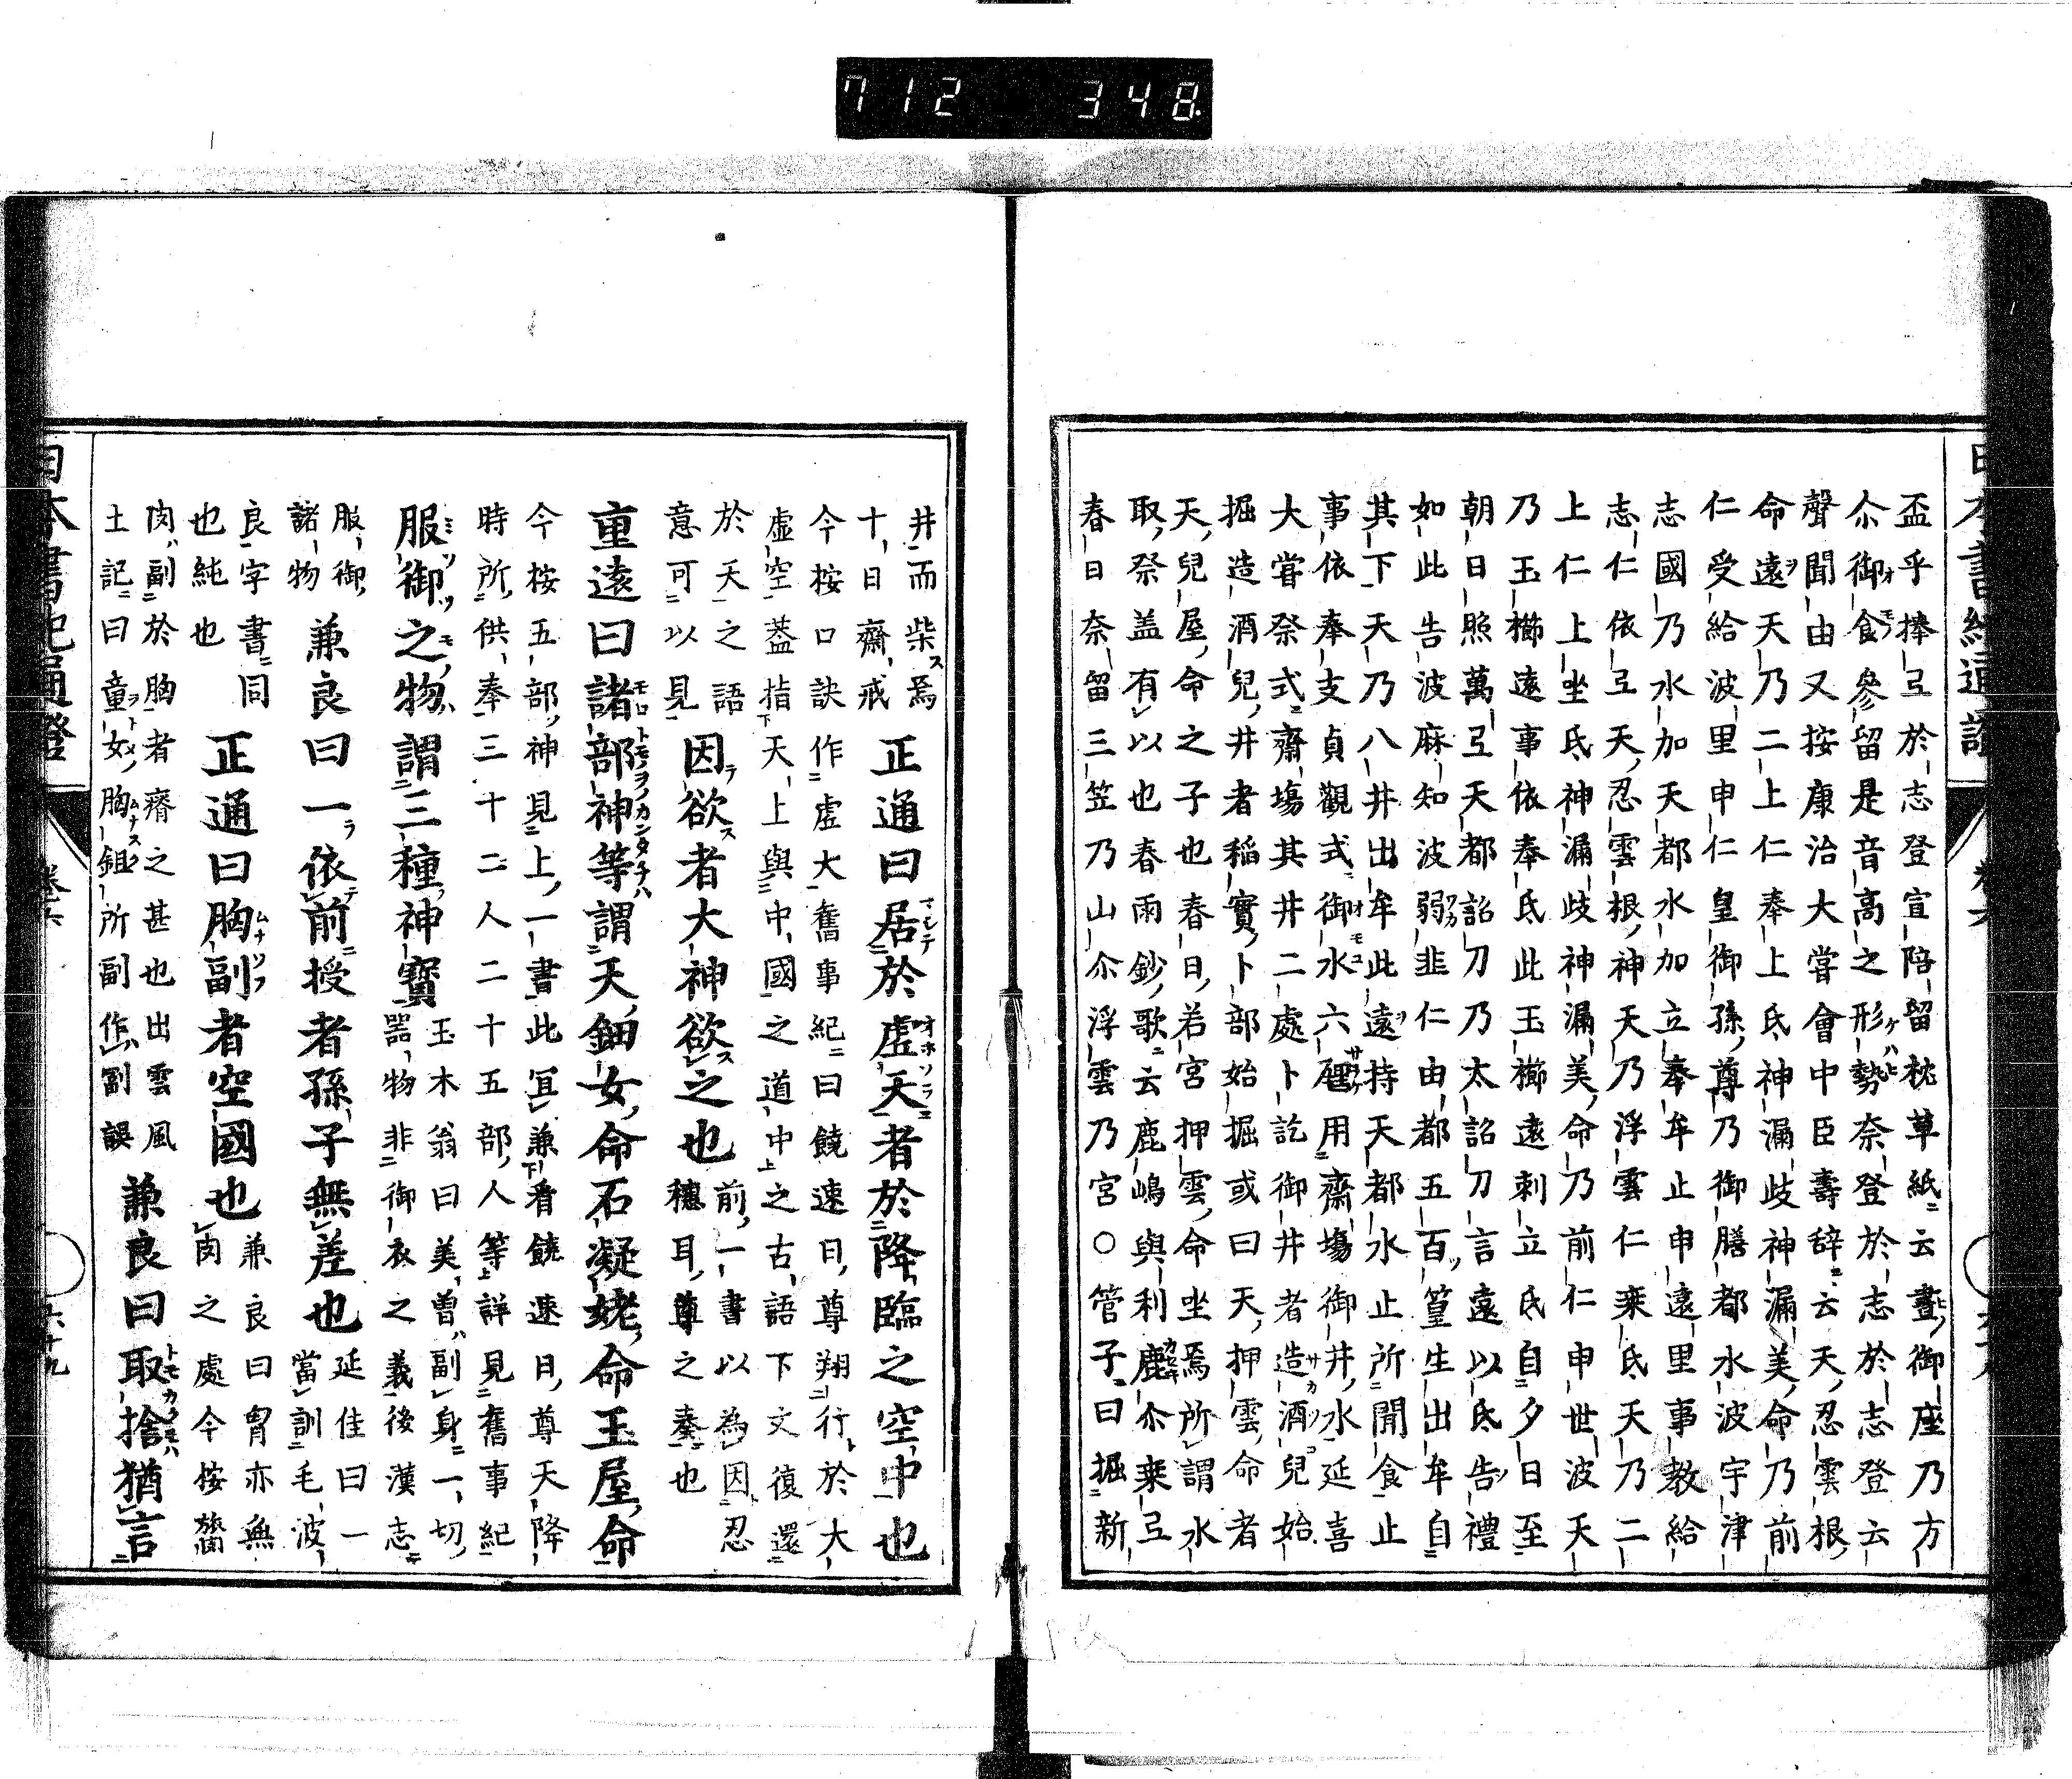 712 348
盃乎捧弖於志登宣陪留枕草紙云晝御座乃方
尒御食參留是音高之形勢奈登於志於志登云
聲聞由又按康治大嘗會中臣壽辞云天忍雲根
命遠天乃二上仁奉上氐神漏歧神漏美命乃前
仁受給波里申仁皇御孫尊乃御膳都水波宇津
志國乃水加天都水加立奉牟止申遠里事教給
志仁依弖天忍雲根神天乃浮雲仁乗氐天乃二
上仁上坐氐神漏歧神漏美命乃前仁申世波天
乃玉櫛遠事依奉氐此玉櫛遠刺立氐自夕日至
朝日照萬弖天都詔刀乃太詔刀言遠以氐告禮
如此告波麻知波弱韮仁由都五百篁生出牟自
其下天乃八井出牟此遠持天都水止所聞食止
事依奉支貞觀式御水六㽅用齋場御井水延喜
大嘗祭式齋場其井二處卜訖御井者造酒兒始
掘造酒兒井者稲實卜部始掘或曰天押雲命者
天兒屋命之子也春日若宮押雲命坐焉所謂水
取祭盖有以也春雨鈔歌云鹿嶋與利鹿尒乗弖
春日奈留三笠乃山尒浮雲乃宮○管子曰掘新
井而柴焉
十日齋戒
正通曰居於虛天者於降臨之空中也
今按口訣作虛大舊事紀曰饒速日尊翔行於大
虛空葢指天上與中國之道中之古語下文復還
於天之語
意可以見
因欲者大神欲之也
前一書以為因忍
穗耳尊之奏也
重遠曰諸部神等謂天鈿女命石凝姥命玉屋命
今按五部神見上一書此冝兼看饒速日尊天降
時所供奉三十二人二十五部人等詳見舊事紀
服御之物謂三種神寶
玉木翁曰美曽副身一切
噐物非御衣之義後漢志
服御
諸物
兼良曰一依前授者孫子無差也
延佳曰一
當訓毛波
良字書同
也純也
正通曰胸副者空國也
兼良曰胷亦無
肉之處今按膂
肉副於胸者瘠之甚也出雲風
土記曰童女胸鉏所副副作㓨誤
兼良曰取捨猶言